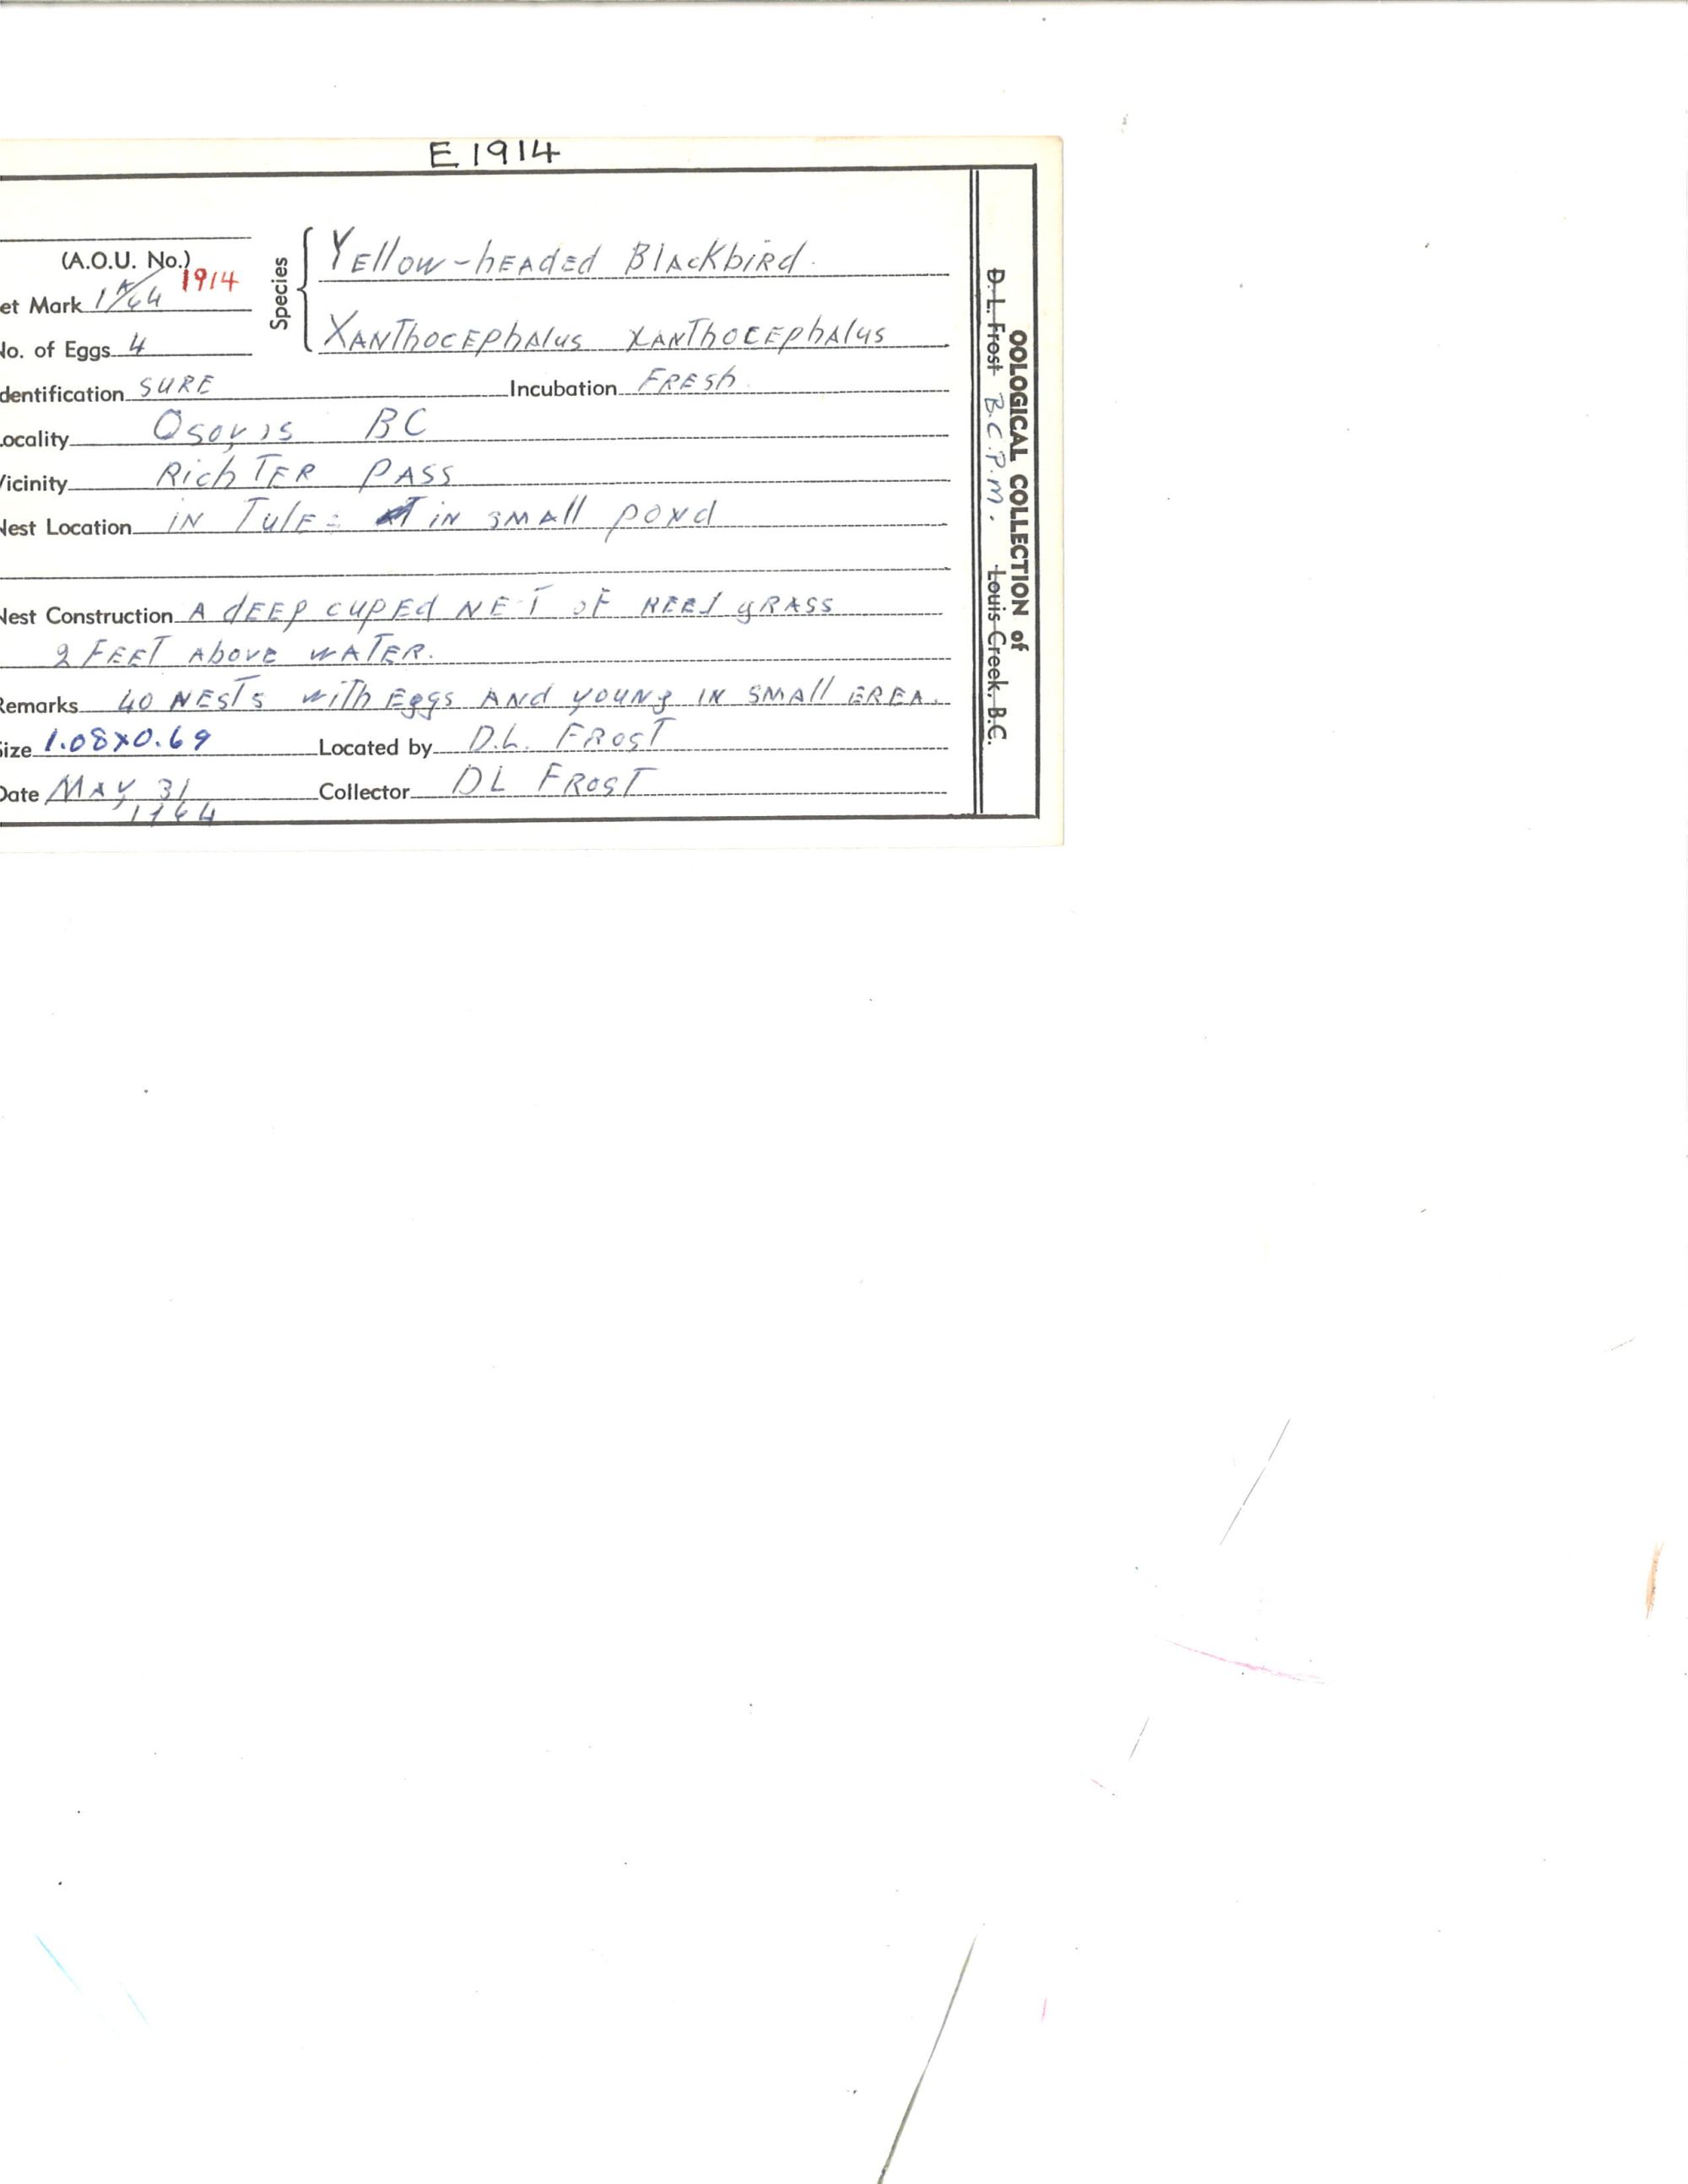 E1914
(A.O.U. No.)
et Mark 1A/64 1914
Species
Yellow-headed Blackbird.
Xanthocephalus xanthocephalus
No. of Eggs 4
dentification SURE Incubation FRESh
ocality Osoyis BC
Vicinity RichTER PASS
Nest Location in Tule in small pond
Nest Construction A dEEp cuped NEST of REED gRASS
2 FEET Above WATER.
Remarks 40 NESTs with Eggs ANd young IN SMAll EREA.
Size 1.08x0.69 Located by D.L. FROST
Date MAY 31 Collector DL FROST
1964
OOLOGICAL COLLECTION of
D. L. Frost B.C.P.M. Louis Creek, B.C.